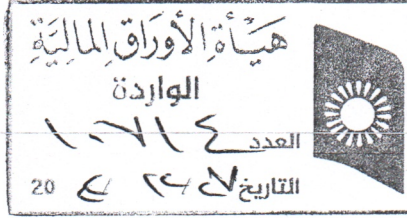 هَيـأة الأورَاق المَاليَة
الواردة
العدد ١٠٧١٤
التاريخ 20